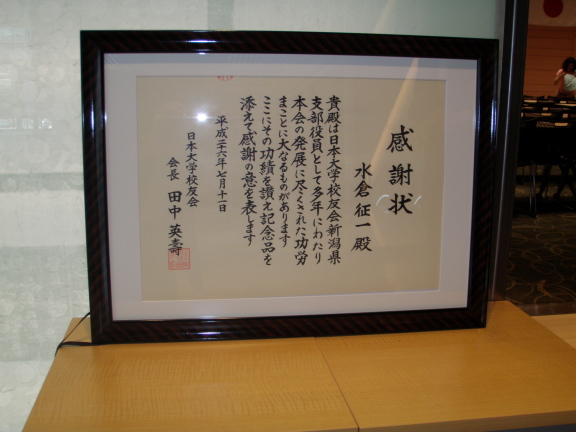 感謝状
水倉征一殿
貴殿は日本大学校友会新潟県
支部役員として多年にわたり
本会の発展に尽くされた功労
まことに大なるものがあります
ここにその功績を讃え記念品を
添えて感謝の意を表します
平成二十六年七月十二日
日本大学校友会
会長 田中英壽